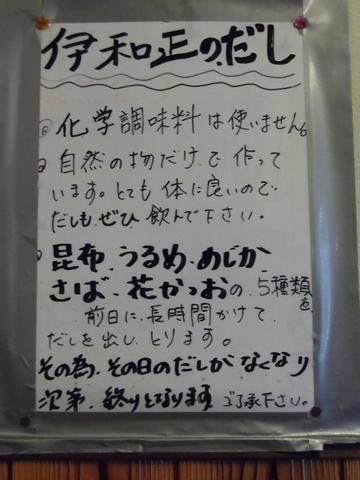 伊和正のだし
◎化学調味料は使いません。
◎自然の物だけで作って
います。とても体に良いので
だしもぜひ飲んで下さい。
◎昆布、うるめ、めじか、
さば、花かつおの5種類を
前日に、長時間かけて
だしを出しとります。
その為、その日のだしがなくなり
次第、終りとなります ご了承下さい。